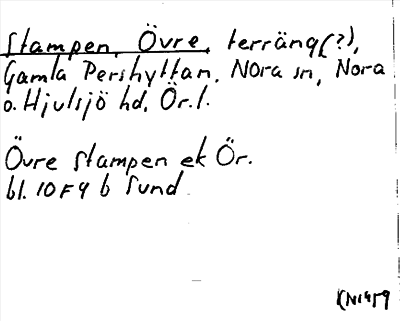 Stampen, Övre, terräng(?),
Gamla Pershyttan, Nora sn, Nora
o. Hjulsjö hd, Ör. l.
Övre Stampen ek Ör.
bl. 10F9 b Sund